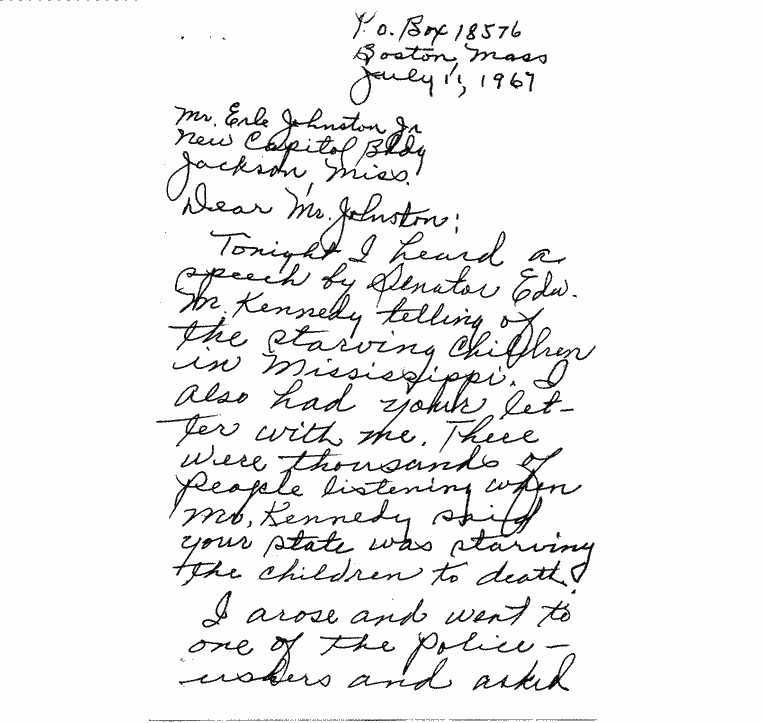 P.O. Box 18576
Boston, Mass
July 11, 1967
Mr. Erle Johnston Jr
New Capitol Bldg
Jackson, Miss.
Dear Mr. Johnston:
Tonight I heard a
speech by Senator Edw.
M. Kennedy telling of
the starving children
in Mississippi. I
also had your let-
ter with me. There
were thousands of
people listening when
Mr. Kennedy said
your state was starving
the children to death.
I arose and went to
one of the police-
ushers and asked